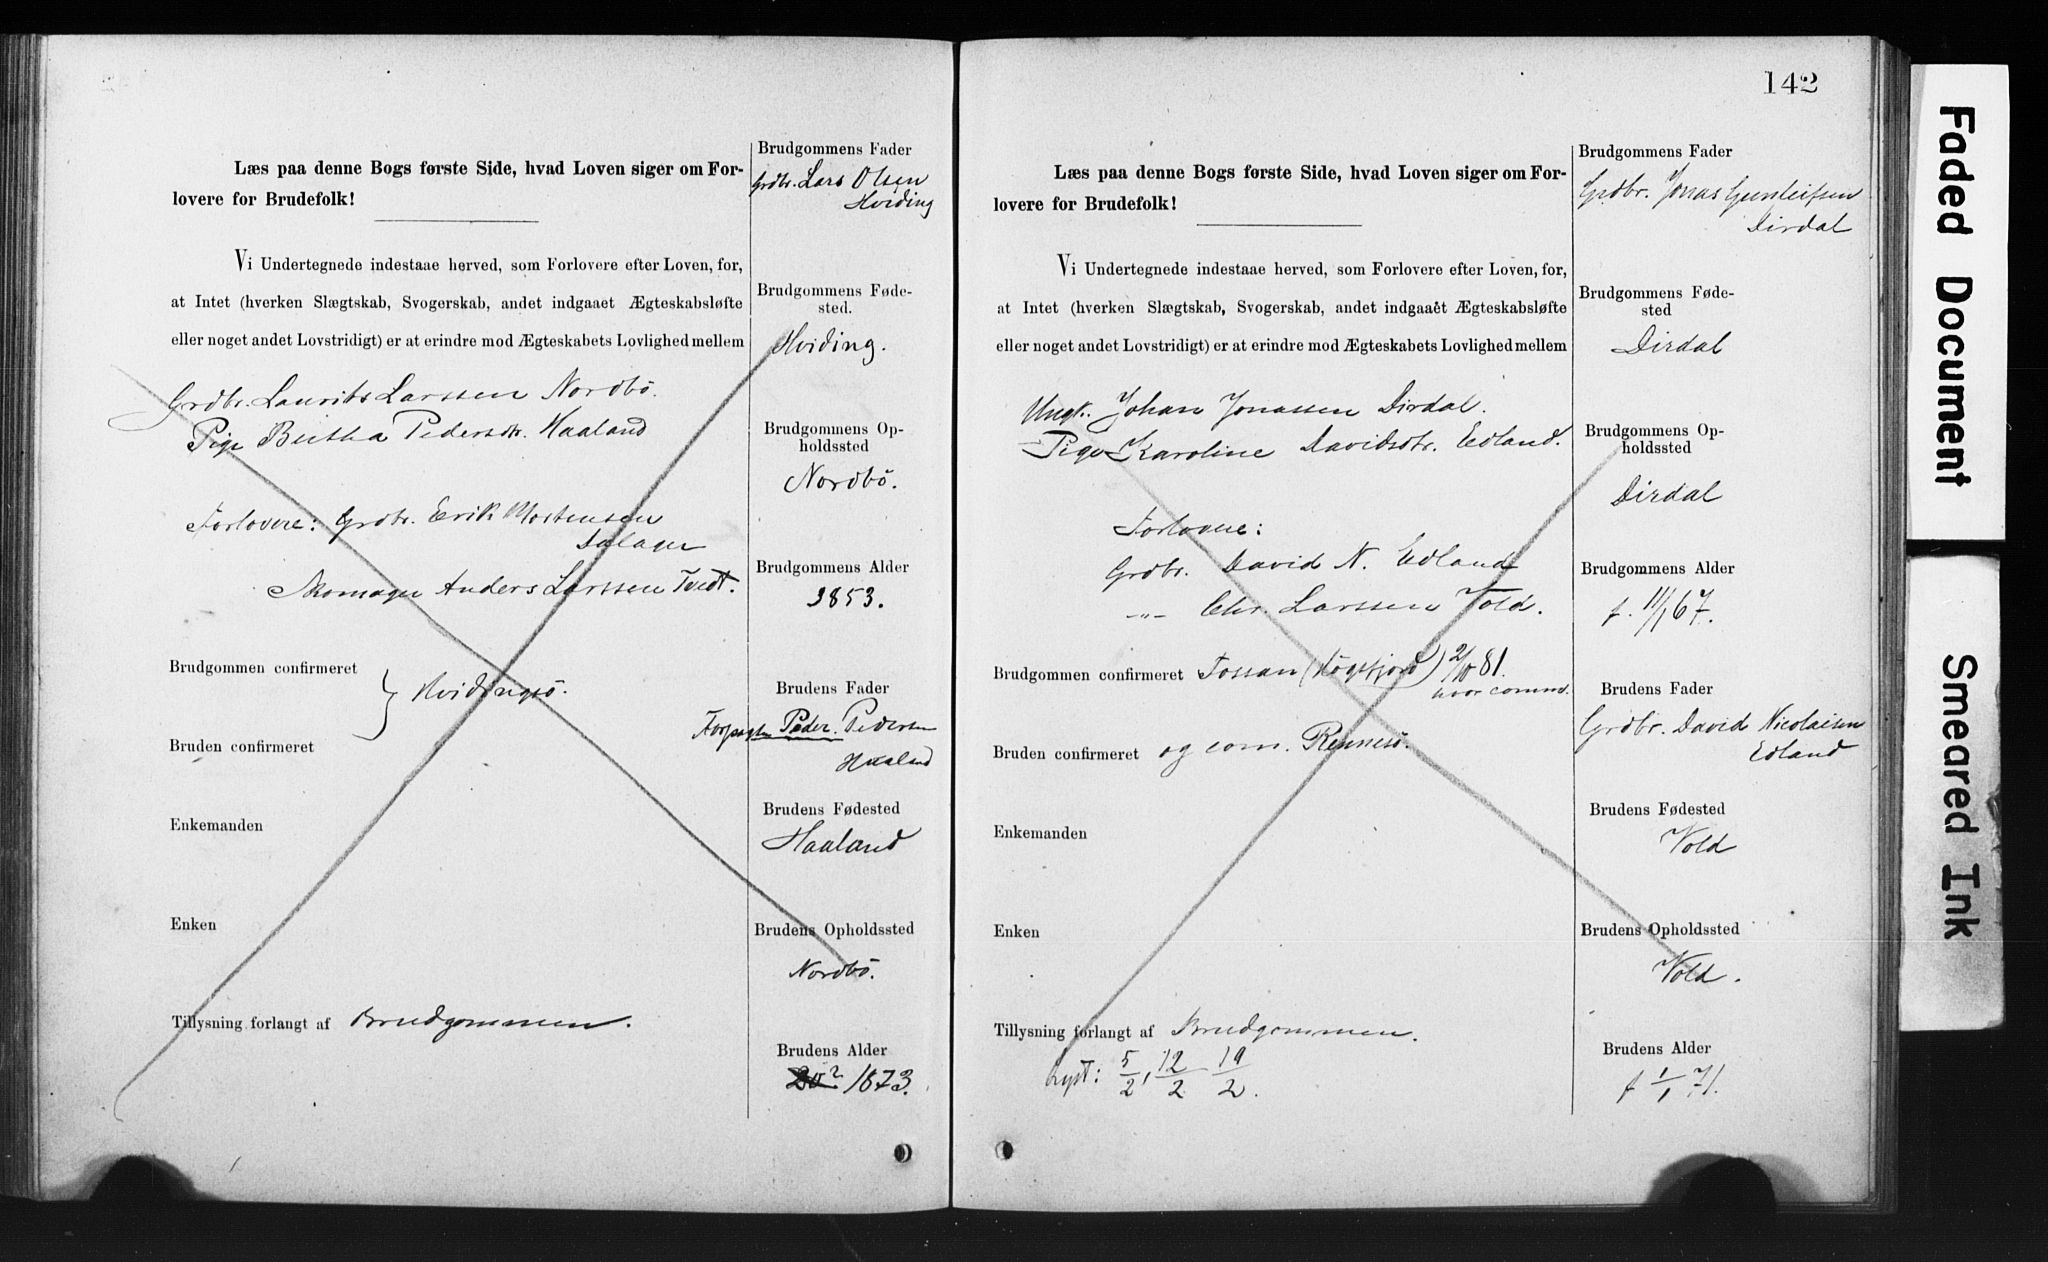 Læs paa denne Bogs første Side, hvad Loven siger om For-
lovere for Brudefolk!
Vi Undertegnede indestaae herved, som Forlovere efter Loven, for,
at Intet (hverken Slægtskab, Svogerskab, andet indgaaet Ægteskabsløfte
eller noget andet Lovstridigt) er at erindre mod Ægteskabets Lovlighed mellem
Grdbr. Laurits Larssen Nordbö.
Pige Bertha Pedersdtr. Haaland
Forlovere: Grdbr. Erik Mortensen
Dalager
Skomager Anders Larssen Tvedt.
Brudgommen confirmeret
} Hvidingsö.
Bruden confirmeret
Enkemanden
Enken
Tillysning forlangt af Brudgommen.
Brudgommens Fader
Grdbr. Lars Olsen
Hviding
Brudgommens Føde-
sted.
Hviding.
Brudgommens Op-
holdssted
Nordbö.
Brudgommens Alder
1853.
Brudens Fader
Forpagter Peder Pedersen
Haaland
Brudens Fødested
Haaland
Brudens Opholdssted
Nordbö.
Brudens Alder
1873.
142
Læs paa denne Bogs første Side, hvad Loven siger om For-
lovere for Brudefolk!
Vi Undertegnede indestaae herved, som Forlovere efter Loven, for,
at Intet (hverken Slægtskab, Svogerskab, andet indgaaet Ægteskabsløfte
eller noget andet Lovstridigt) er at erindre mod Ægteskabets Lovlighed mellem
Ungk. Johan Jonassen Dirdal.
Pige Karoline Davidsdtr. Edland.
Forlovere:
Grdbr. David N. Edland
-"- Chr. Larssen Vold.
Brudgommen confirmeret Fossan (Högsfjord) 2/10 81.
hvor comm.
Bruden confirmeret og com. Rennesö.
Enkemanden
Enken
Tillysning forlangt af Brudgommen.
Lyst: 5/2, 12/2 19/2.
Brudgommens Fader
Grdbr. Jonas Gunleifsen
Dirdal
Brudgommens Føde-
sted
Dirdal
Brudgommens Op-
holdssted
Dirdal
Brudgommens Alder
f. 11/1 67.
Brudens Fader
Grdbr. David Nicolaisen
Edland
Brudens Fødested
Vold
Brudens Opholdssted
Vold.
Brudens Alder
f 1/1 71.
Faded Document
Smeared Ink